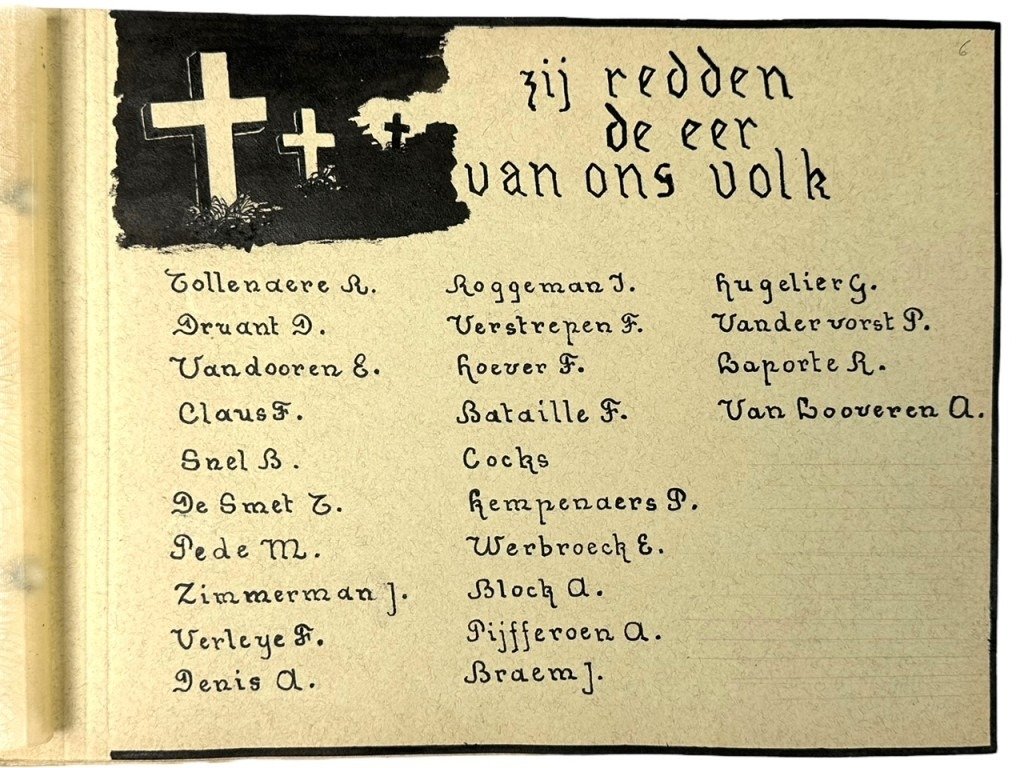 6
zij redden
de eer
van ons volk
Tollenaere R.
Druant D.
Vandooren E.
Claus F.
Snel B.
De Smet T.
Pede M.
Zimmerman J.
Verleye F.
Denis A.
Roggeman I.
Verstrepen F.
Hoever F.
Bataille F.
Cocks
Kempenaers P.
Werbroeck E.
Block A.
Pijfferoen A.
Braem J.
Hugelier G.
Vandervorst P.
Laporte R.
Van Looveren A.